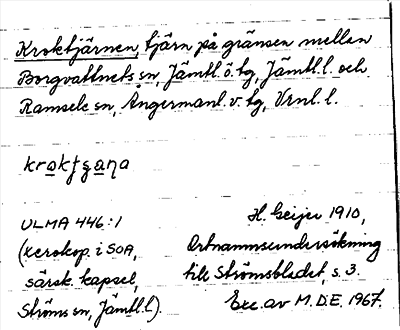 Kroktjärnen, tjärn på gränsen mellan
Borgvattnets sn, Jämtl. ö. tg, Jämtl. l. och
Ramsele sn, Ångermanl. v. tg, Vrnl. l.
ULMA 446:1
(xerokop. i SOA,
särsk. kapsel,
Ströms sn, Jämtl. l.).
H. Geijer 1910,
Ortnamnsundersökning
till Strömsbladet, s. 3.
Exc. av M. D.E. 1967.